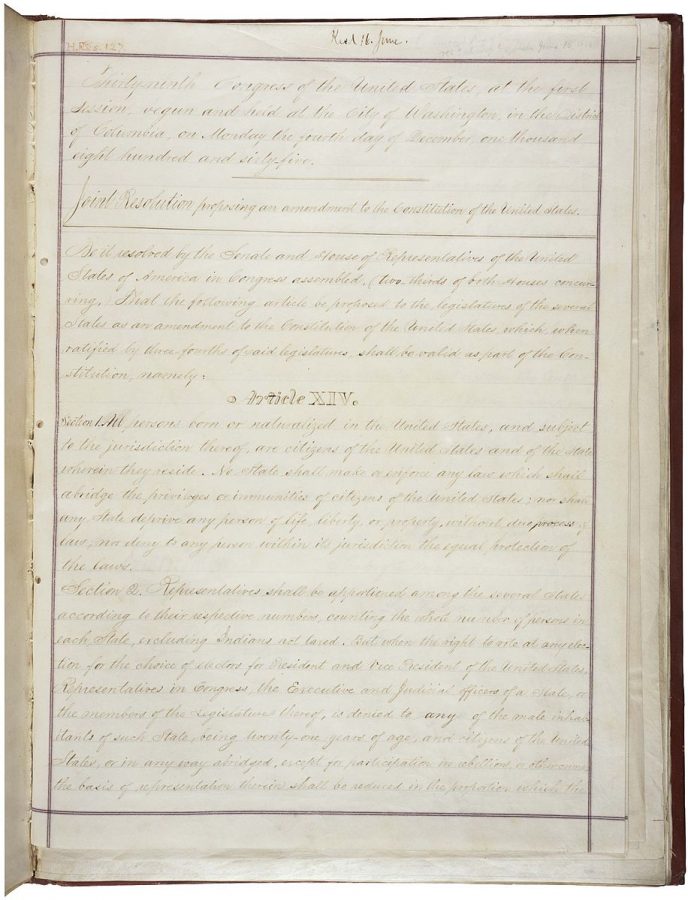 H.Res. 127
Recd 16. June.
Thirty-ninth Congress of the United States, at the first
Session, begun and held at the City of Washington, in the District
of Columbia, on Monday the fourth day of December, one thousand
eight hundred and sixty-five.
Joint Resolution proposing an amendment to the Constitution of the United States.
Be it resolved by the Senate and House of Representatives of the United
States of America in Congress assembled, (two thirds of both Houses concur-
ring,) That the following article be proposed to the legislatures of the several
States as an amendment to the Constitution of the United States, which, when
ratified by three fourths of said legislatures, shall be valid as part of the Con-
stitution, namely:
Article XIV.
Section 1. All persons born or naturalized in the United States, and subject
to the jurisdiction thereof, are citizens of the United States and of the State
wherein they reside. No State shall make or enforce any law which shall
abridge the privileges or immunities of citizens of the United States; nor shall
any State deprive any person of life, liberty, or property, without due process of
law; nor deny to any person within its jurisdiction the equal protection of
the laws.
Section 2. Representatives shall be apportioned among the several States
according to their respective numbers, counting the whole number of persons in
each State, excluding Indians not taxed. But when the right to vote at any elec-
tion for the choice of electors for President and Vice President of the United States,
Representatives in Congress, the Executive and Judicial officers of a State, or
the members of the Legislature thereof, is denied to any of the male inhab-
itants of such State, being twenty-one years of age, and citizens of the United
States, or in any way abridged, except for participation in rebellion, or other crime,
the basis of representation therein shall be reduced in the proportion which the